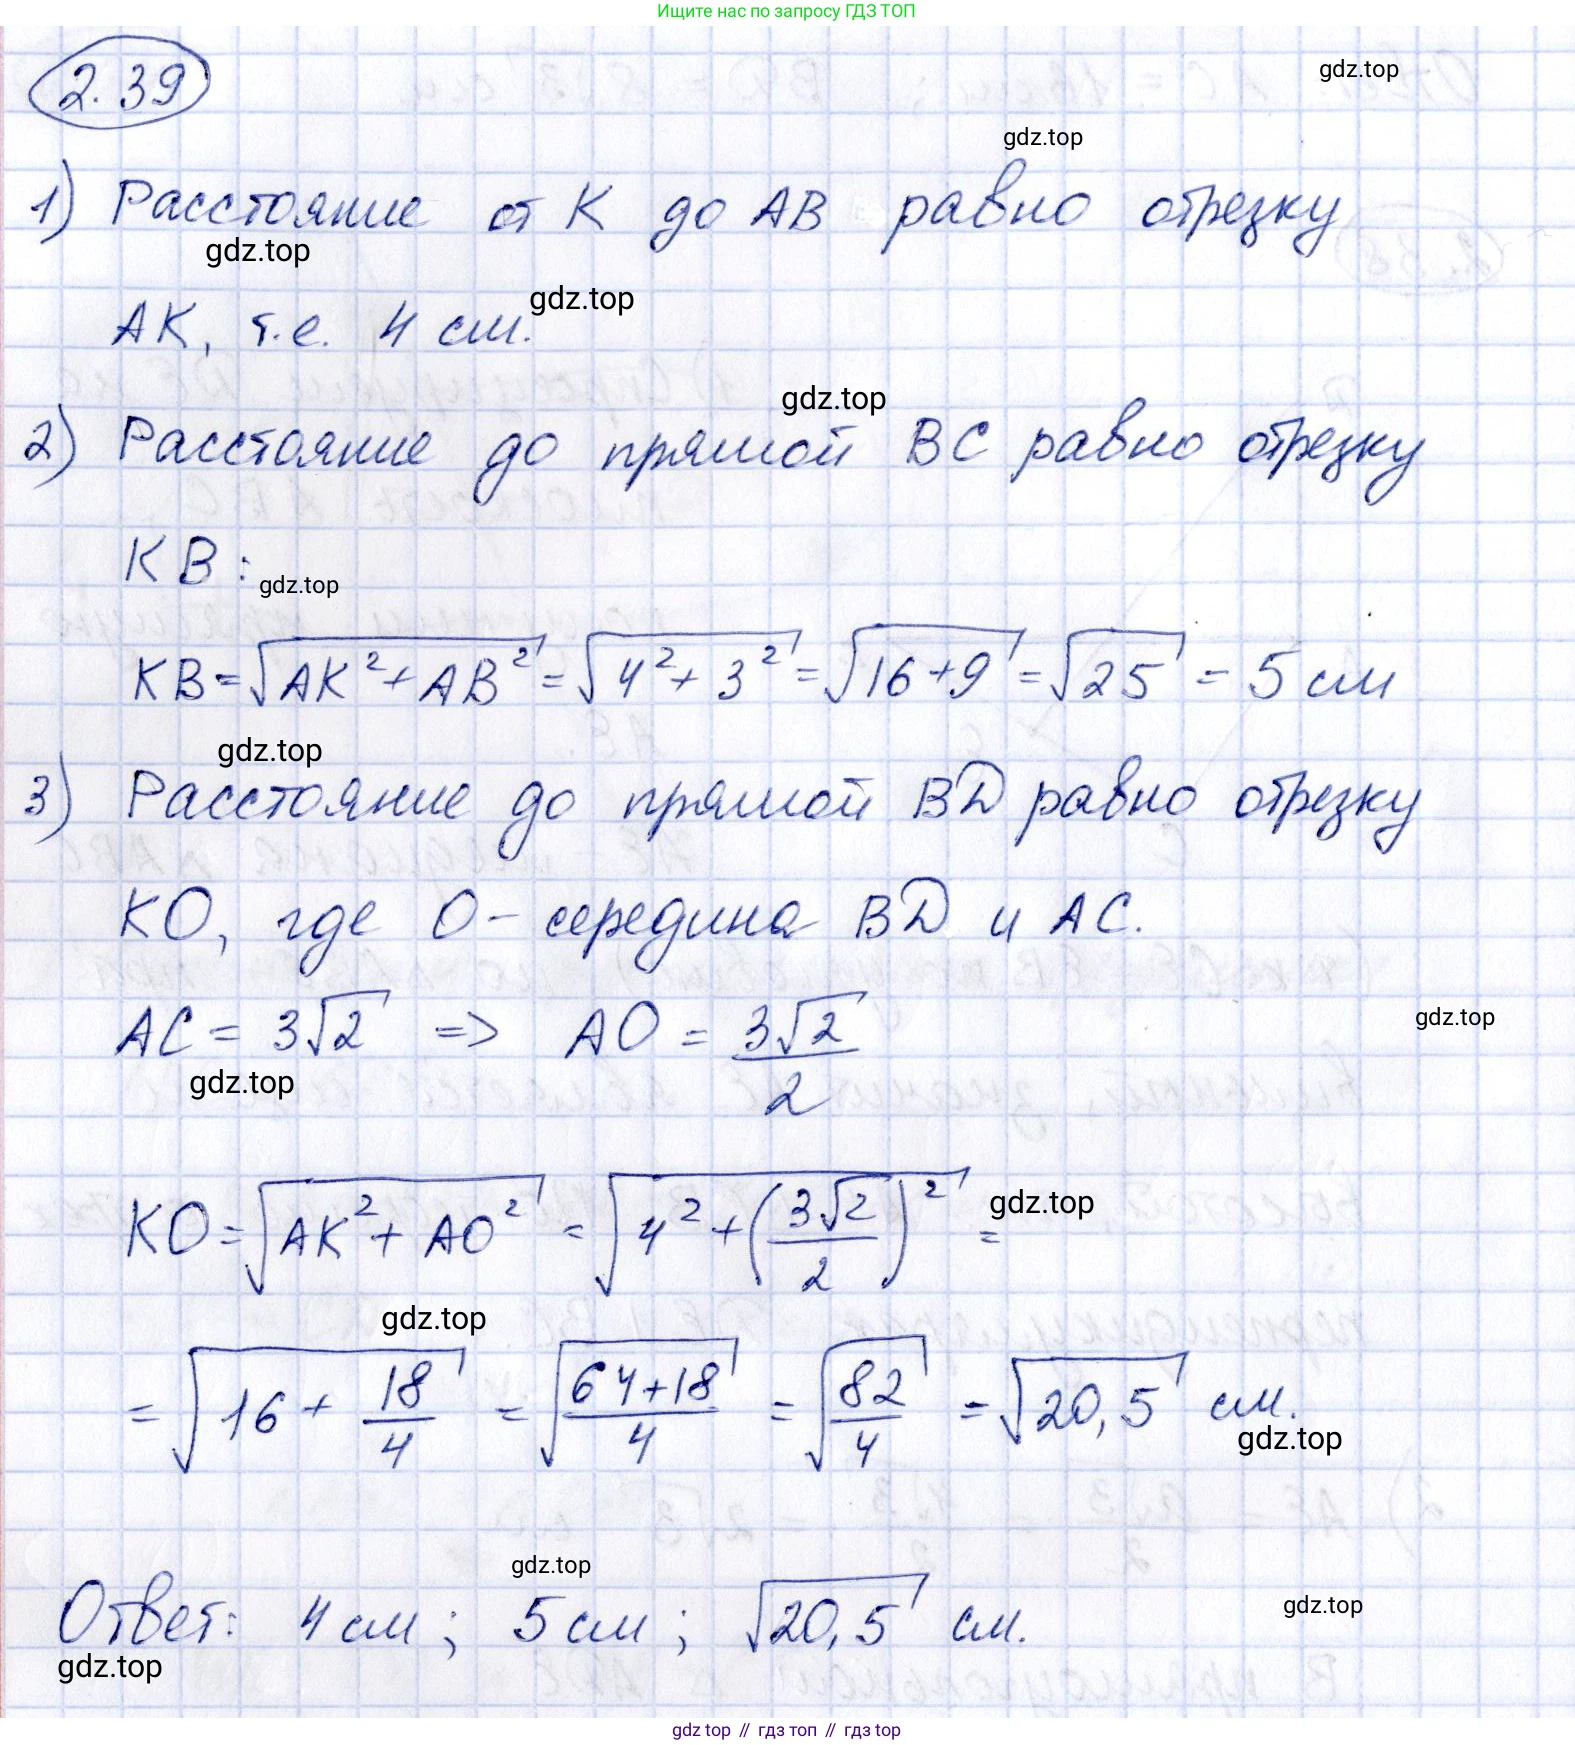 Ищите нас по запросу ГДЗ ТОП
2.39
gdz.top
gdz.top
1) Расстояние от К до АВ равно отрезку
gdz.top
АК, т.е. 4 см.
gdz.top
gdz.top
2) Расстояние до прямой ВС равно отрезку
КВ:
gdz.top
КВ=√(АК²+АВ²)=√(4²+3²)=√(16+9)=√25=5 см
gdz.top
3) Расстояние до прямой BD равно отрезку
КО, где О - середина BD и АС.
АС=3√2 => АО=3√2/2
gdz.top
gdz.top
КО=√(АК²+АО²)=√(4²+(3√2/2)²)=
gdz.top
gdz.top
=√(16+18/4)=√((64+18)/4)=√(82/4)=√20,5 см.
gdz.top
gdz.top
Ответ: 4 см; 5 см; √20,5 см.
gdz.top
gdz.top
gdz top // гдз топ // гдз top